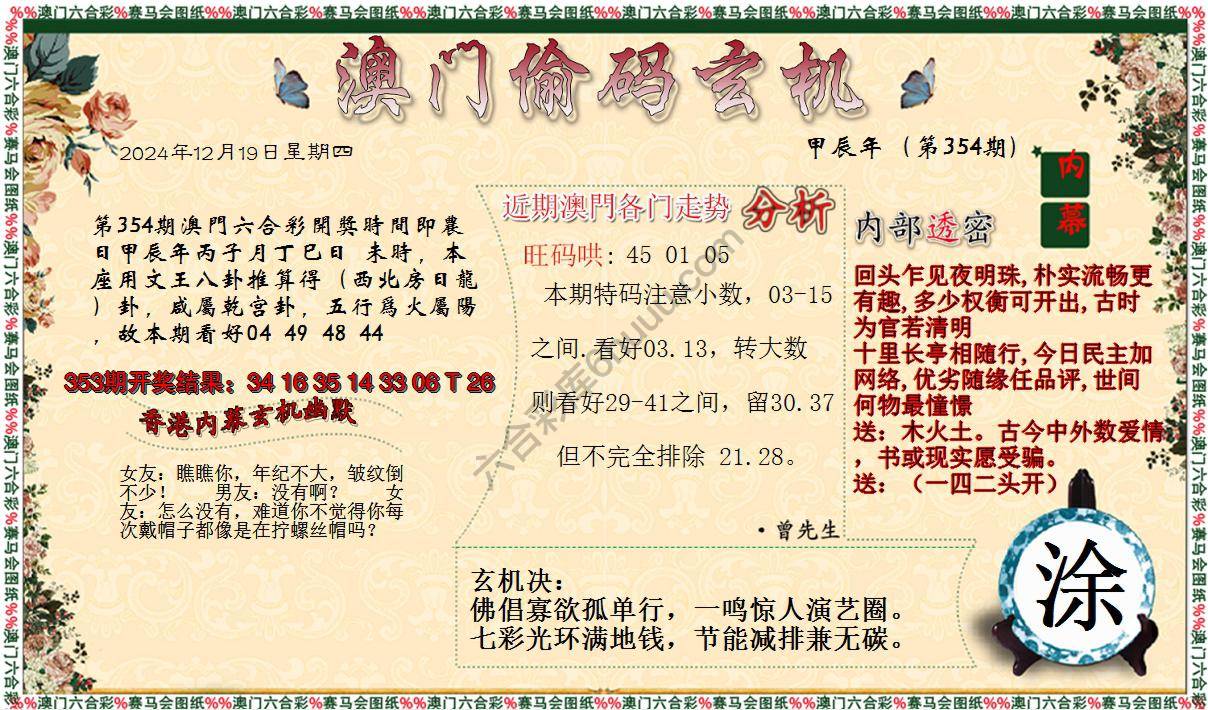 %%澳门六合彩%赛马会图纸%%澳门六合彩%赛马会图纸%%澳门六合彩%赛马会图纸%%澳门六合彩%赛马会图纸%%澳门六合彩%赛马会图纸%%澳门六合彩%赛马会图纸%%
澳门偷码玄机
2024年12月19日星期四
甲辰年（第354期）
内幕
第354期澳門六合彩開獎時間即農
日甲辰年丙子月丁巳日 未時，本
座用文王八卦推算得（西北房日龍
）卦，咸屬乾宫卦，五行爲火屬陽
，故本期看好04 49 48 44
353期开奖结果：34 16 35 14 33 06 T 26
香港内幕玄机幽默
女友：瞧瞧你，年纪不大，皱纹倒
不少！ 男友：没有啊？ 女
友：怎么没有，难道你不觉得你每
次戴帽子都像是在拧螺丝帽吗？
近期澳門各门走势 分析
旺码哄：45 01 05
本期特码注意小数，03-15
之间.看好03.13，转大数
则看好29-41之间，留30.37
但不完全排除 21.28。
·曾先生
内部透密
回头乍见夜明珠,朴实流畅更
有趣,多少权衡可开出,古时
为官若清明
十里长亭相随行,今日民主加
网络,优劣随缘任品评,世间
何物最憧憬
送：木火土。古今中外数爱情
，书或现实愿受骗。
送：（一四二头开）
玄机决：
佛倡寡欲孤单行，一鸣惊人演艺圈。
七彩光环满地钱，节能减排兼无碳。
涂
%%澳门六合彩%赛马会图纸%%澳门六合彩%赛马会图纸%%澳门六合彩%赛马会图纸%%澳门六合彩%赛马会图纸%%澳门六合彩%赛马会图纸%%澳门六合彩%赛马会图纸%%